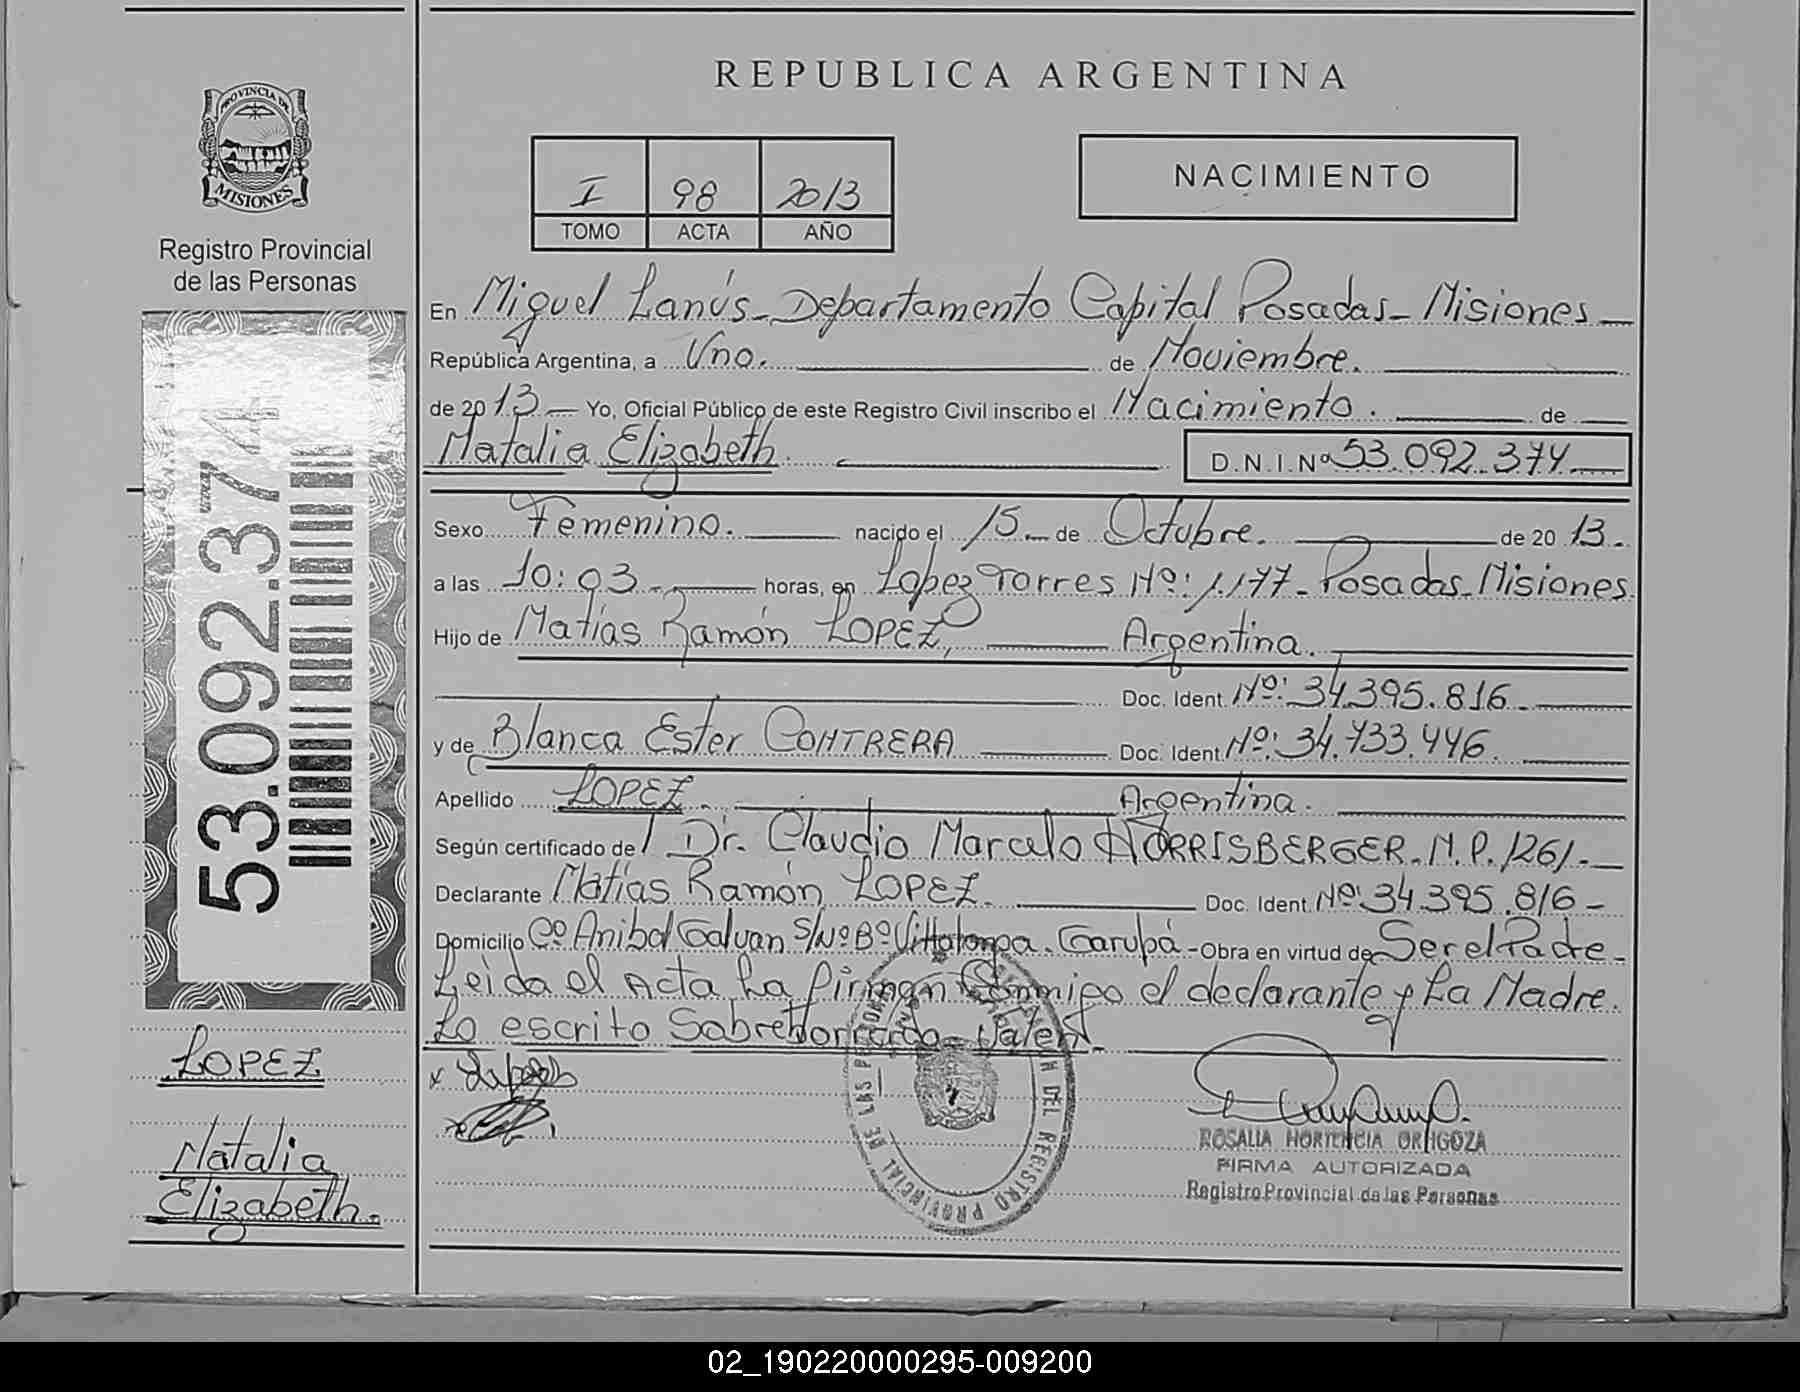 PROVINCIA DE
MISIONES
Registro Provincial
de las Personas
53.092.374
LOPEZ
Natalia
Elizabeth.
REPUBLICA ARGENTINA
I 98 2013
TOMO ACTA AÑO
NACIMIENTO
En Miguel Lanús - Departamento Capital Posadas - Misiones -
República Argentina, a Uno. de Noviembre.
de 2013 - Yo, Oficial Público de este Registro Civil inscribo el Nacimiento. de
Natalia Elizabeth. D.N.I.Nº 53.092.374
Sexo Femenino. nacido el 15 - de Octubre. de 2013.
a las 10:03 - horas, en Lopez Torres Nº: 1.177 - Posadas - Misiones.
Hijo de Matías Ramón LOPEZ, Argentina.
Doc. Ident. Nº: 34.395.816 -
y de Blanca Ester CONTRERA Doc. Ident. Nº: 34.733.446.
Apellido LOPEZ. Argentina.
Según certificado de Dr. Claudio Marcelo HORRISBERGER. M.P. 1261. -
Declarante Matías Ramón LOPEZ. Doc. Ident. Nº 34.395.816 -
Domicilio Cº Anibal Galvan S/Nº Bº Villalonga. Garupá - Obra en virtud de Ser el Padre -
Leida el Acta La firman Conmigo el declarante y La Madre.
Lo escrito Sobreborrado - Valen -
DEL REGISTRO PROVINCIAL DE LAS PERSONAS
ROSALIA HORTENCIA ORTIGOZA
FIRMA AUTORIZADA
Registro Provincial de las Personas
02_190220000295-009200